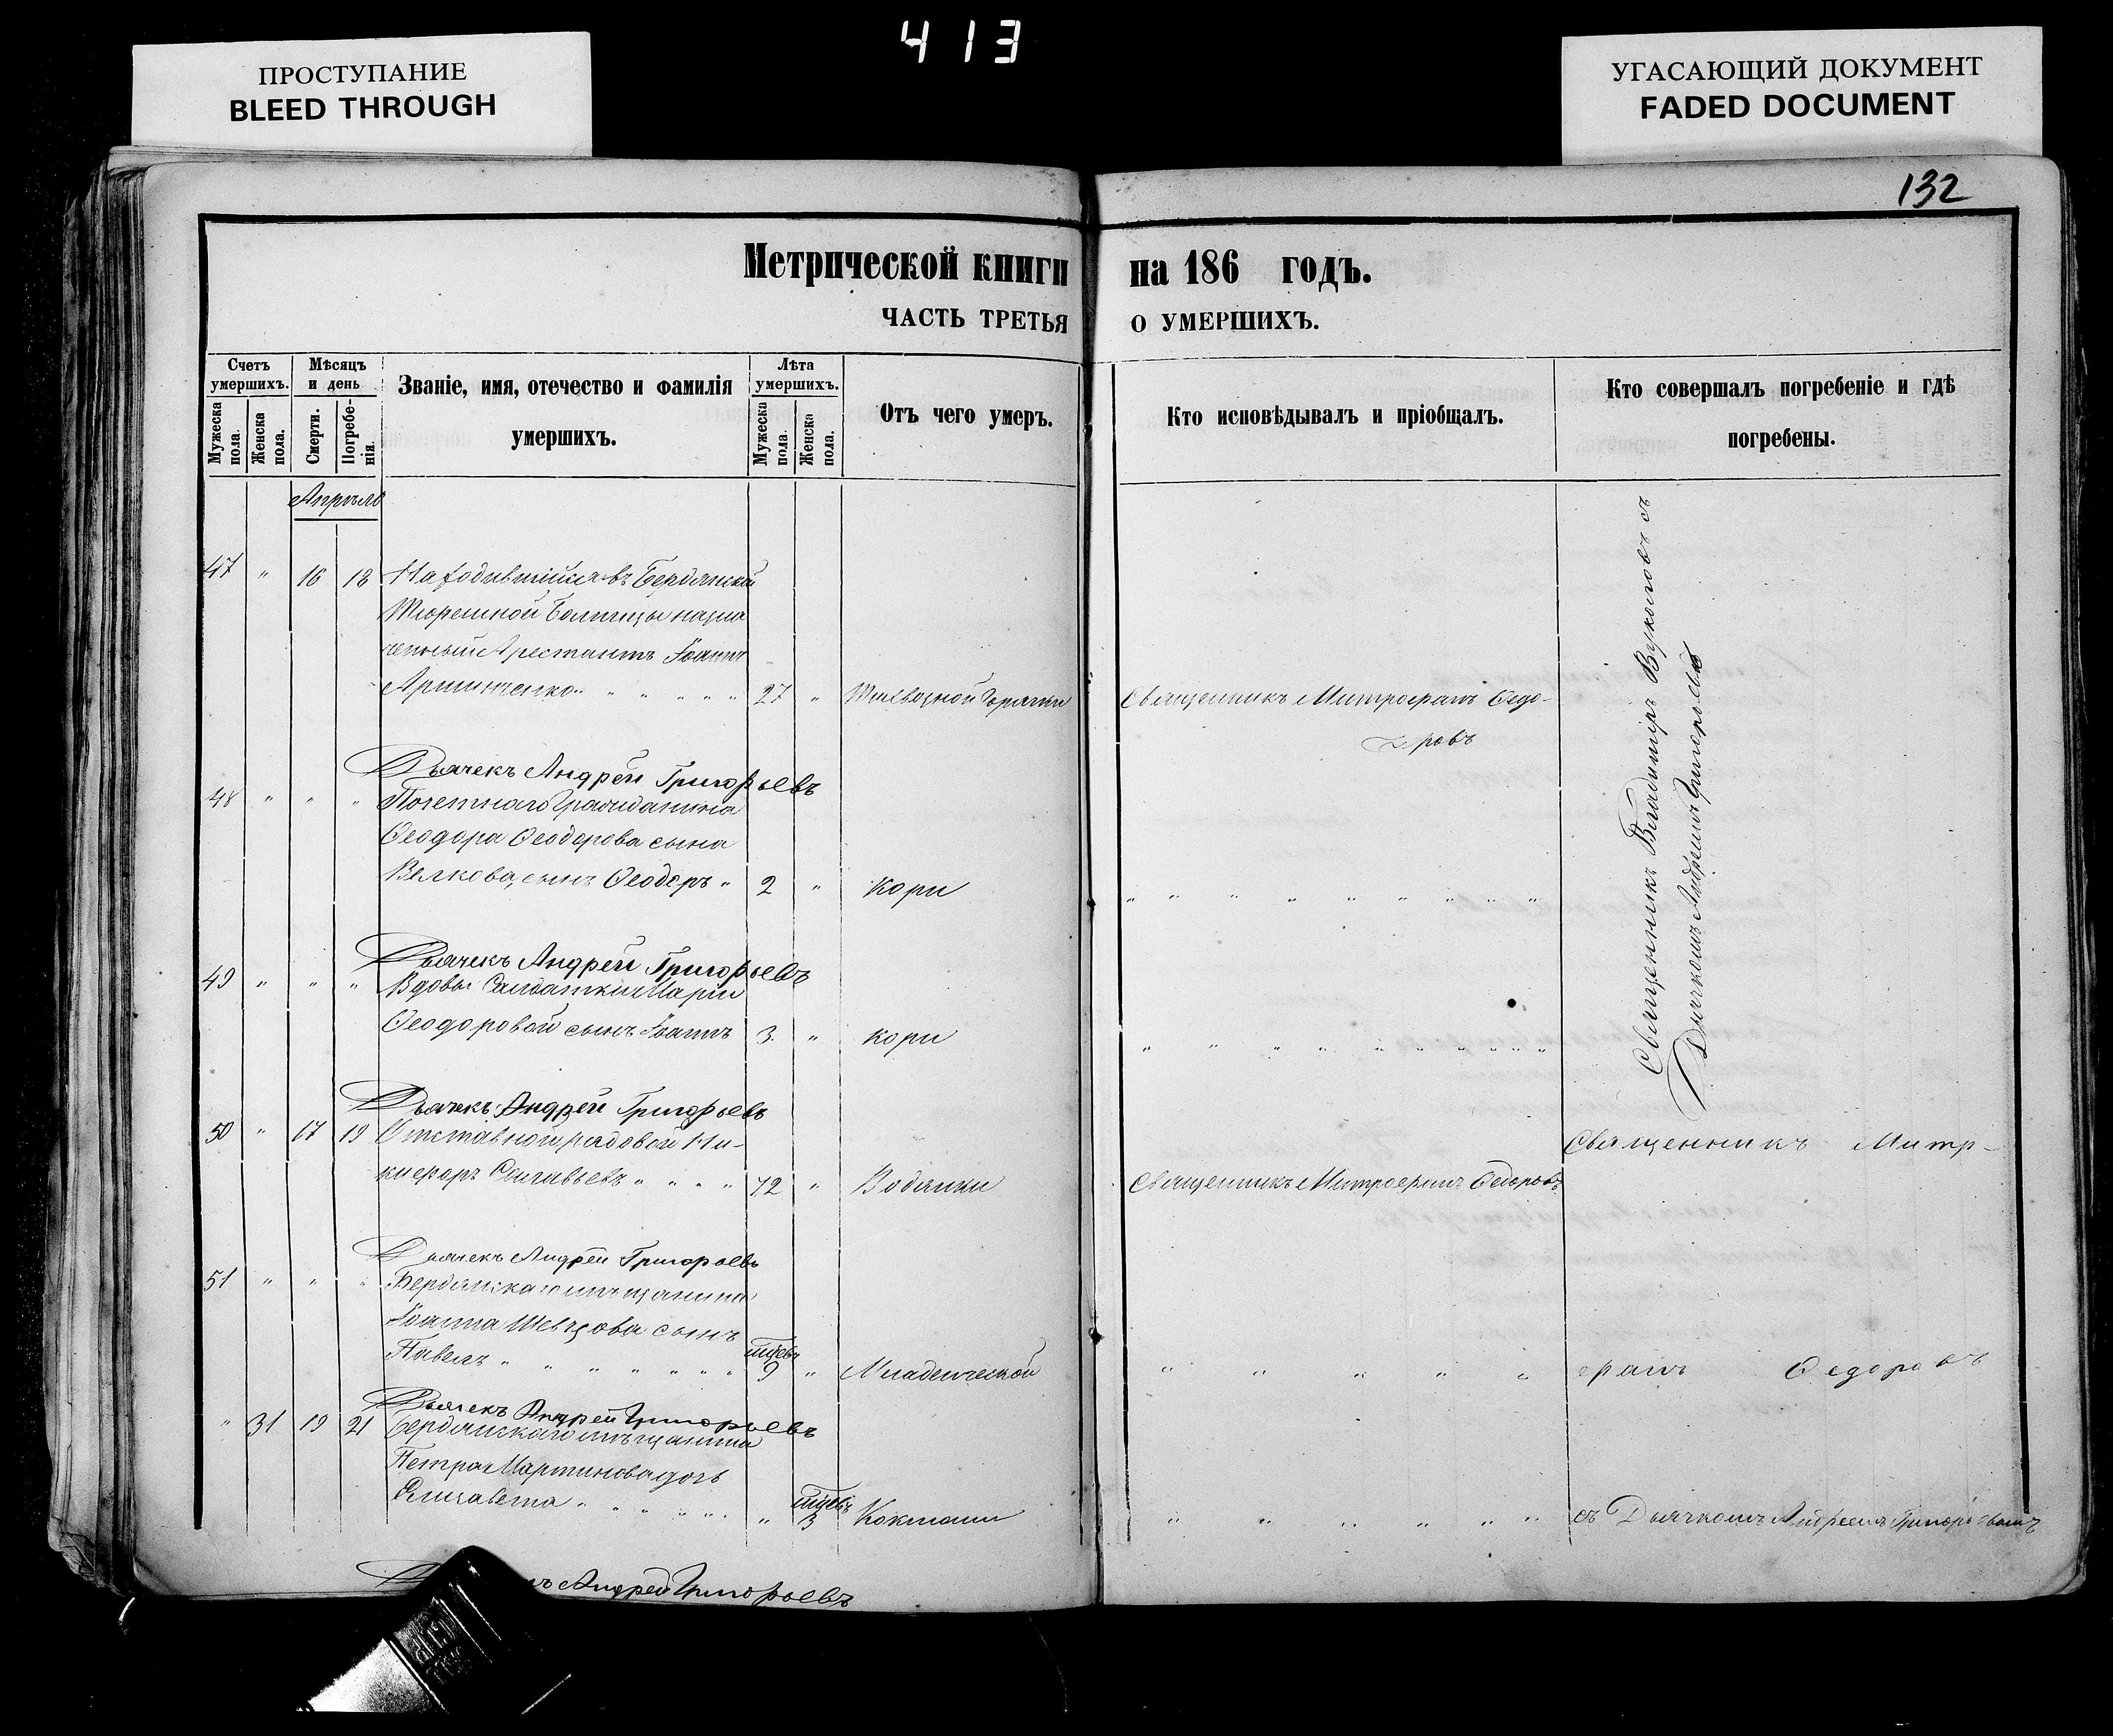 413
ПРОСТУПАНИЕ
BLEED THROUGH
УГАСАЮЩИЙ ДОКУМЕНТ
FADED DOCUMENT
132
Метрической книги на 186 годъ.
ЧАСТЬ ТРЕТЬЯ О УМЕРШИХЪ.
Счетъ умершихъ.
Мужеска пола.
Женска пола.
Мѣсяцъ и день
Смерти.
Погребенія.
Званіе, имя, отечество и фамилія умершихъ.
Лѣта умершихъ.
Мужеска пола.
Женска пола.
Отъ чего умеръ.
Кто исповѣдывалъ и пріобщалъ.
Кто совершалъ погребеніе и гдѣ погребены.
47 " 16 18 Находившійся въ Бердянской
Тюремной
Арестантъ Іоаннъ
" " " " " 27 " горячки
Священникъ Митрофанъ Федо-
ровъ
Дьячекъ Андрей Григорьевъ
48 " " " Почетнаго Гражданина
Феодора Феодорова сына
Велкова, сынъ Феодоръ " 2 " Кори
" " " " " " " " "
Дьячекъ Андрей Григорьевъ
49 " " " Вдовы Салдатки Маріи
Феодоровой сынъ Іоаннъ 3 " кори
" " " " " " " " " "
Священникъ Владиміръ Вуколовъ съ
Дьячкомъ Андреемъ Григорьевымъ
Дьячекъ Андрей Григорьевъ
50 " 17 19 Отставной рядовой Ни-
кифоръ " " " " 72 " Водянки
Священникъ Митрофанъ Федоровъ
Священникъ Митр-
Дьячекъ Андрей Григорьевъ
51 " " " Бердянскаго мѣщанина
Іоанна Шевцова сынъ
Павелъ " " " " " " мцевъ 9 " Младенческой
" " " " "
офанъ Федоровъ
Дьячекъ Андрей Григорьевъ
" 31 19 21 Бердянскаго мѣщанина
Петра Мартинова дочь
Елизавета " " " " " " мцевъ 3
" " " " " "
съ Дьячкомъ Андреемъ Григорьевымъ
Андрей Григорьевъ